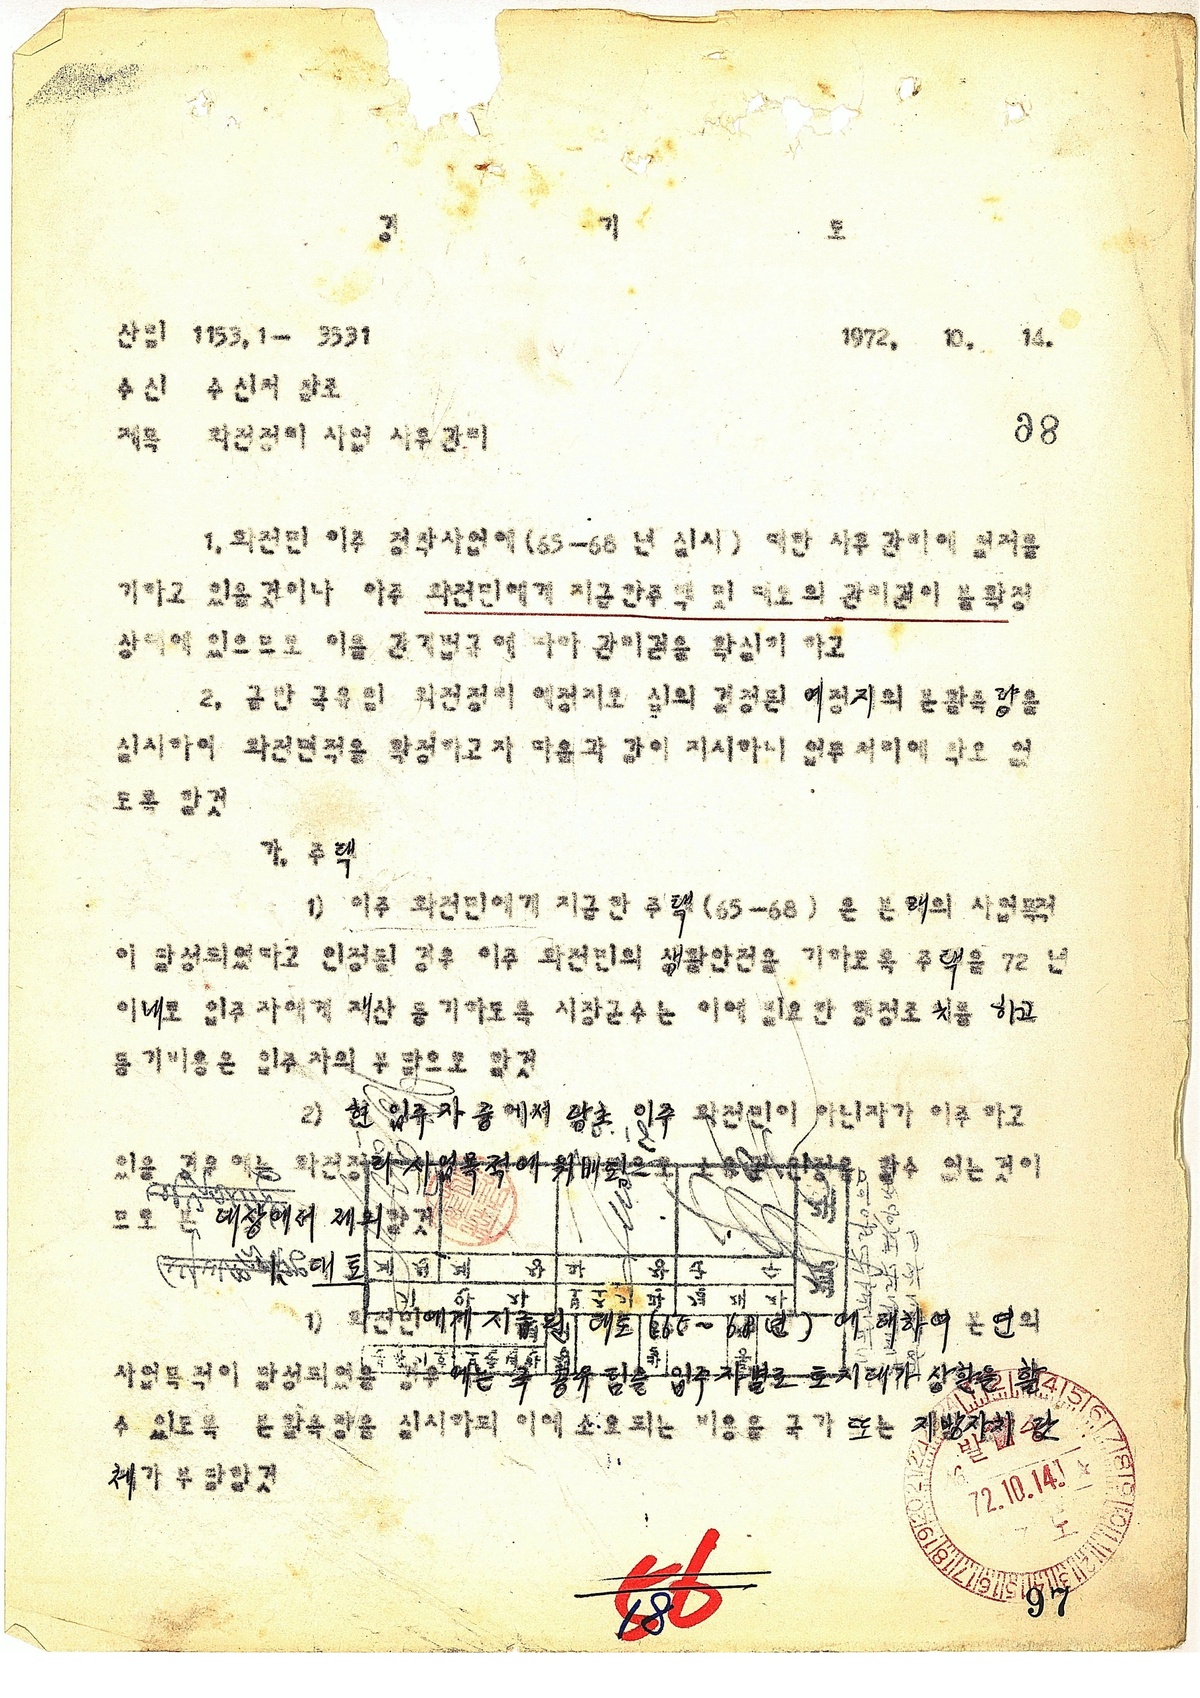 경 기 도
산림 1153.1- 3531 1972. 10. 14.
수신 수신처 참조
제목 화전정리 사업 사후관리
28
1. 화전민 이주 정착사업에(65-68 년 실시) 대한 사후관리에 철저를
기하고 있을것이나 이주 화전민에게 지급한주택 및 대토의 관리권이 불확정
상태에 있으므로 이를 관계법규에 따라 관리권을 확실히 하고
2. 금반 국유림 화전정리 예정지로 심의 결정된 예정지의 분할측량을
실시하여 화전면적을 확정하고자 다음과 같이 지시하니 업무처리에 착오 없
도록 할것
가. 주택
1) 이주 화전민에게 지급한 주택(65-68) 은 본래의 사업목적
이 달성되었다고 인정될 경우 이주 화전민의 생활안전을 기하도록 주택을 72 년
이내로 입주자에게 재산 등기하도록 시장군수는 이에 필요한 행정조치를 하고
등기비용은 입주자의 부담으로 할것
2) 현 입주자 중에서 당초 이주 화전민이 아닌자가 이주하고
있을 경우에는 화전정리 사업목적에 위배됨으로 소유권 인정을 할수 없는것이
므로 는 대상에서 제외할것
나. 대토
1) 화전민에게 지급된 대토 (66~68년) 에 대하여 본연의
사업목적이 달성되었을 경우에는 국 공유림을 입주자별로 토지대가 상환을 할
수 있도록 분할측량을 실시하되 이에 소요되는 비용을 국가 또는 지방자치 단
체가 부담할것
발
72.10.14.
도
66
18
97